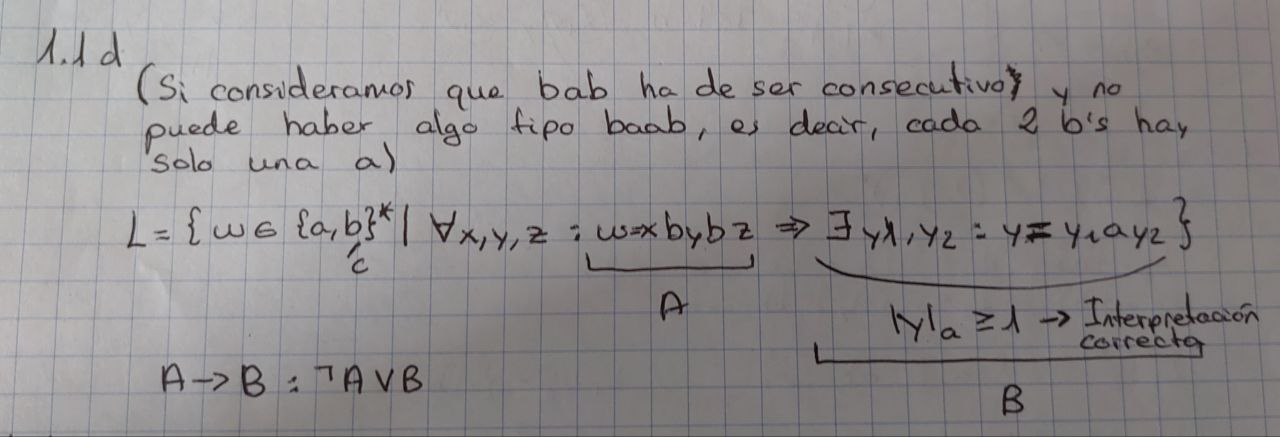 1.1 d
(Si consideramos que bab ha de ser consecutivo y no
puede haber algo tipo baab, es decir, cada 2 b's hay
solo una a)
L = { w ∈ {a,b}* | ∀x,y,z : w=xbybz ⇒ ∃y1,y2 : y=y1ay2 }
c
A
|y|a ≥ 1 → Interpretación
correcta
A → B : ¬A ∨ B
B